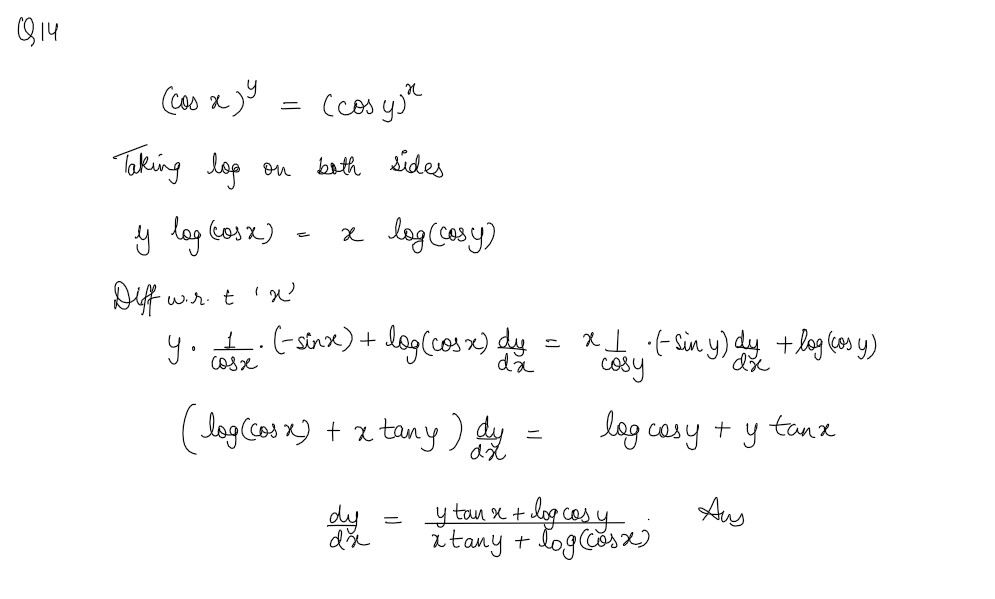 Q14
(cos x)^y = (cos y)^x
Taking log on both sides
y log(cos x) = x log(cos y)
Diff w.r.t 'x'
y · 1/cos x · (-sin x) + log(cos x) dy/dx = x 1/cos y · (-sin y) dy/dx + log(cos y)
(log(cos x) + x tan y) dy/dx = log cos y + y tan x
dy/dx = (y tan x + log cos y)/(x tan y + log(cos x)) Ans